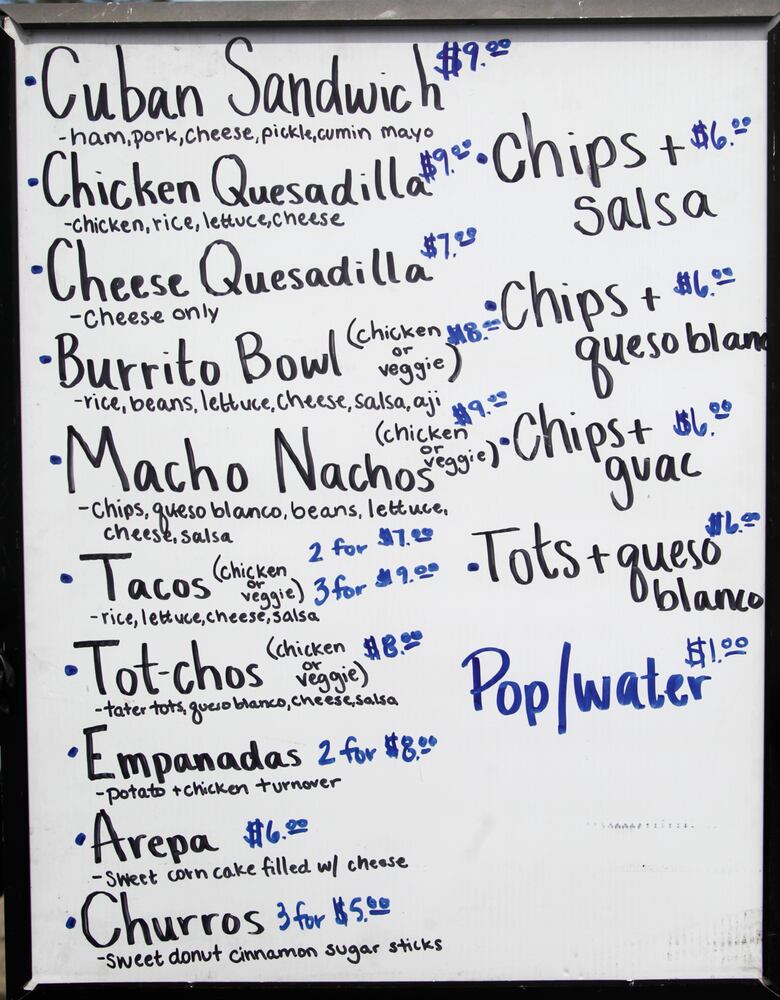 • Cuban Sandwich $9.00
-ham, pork, cheese, pickle, cumin mayo
• Chicken Quesadilla $9.00
-chicken, rice, lettuce, cheese
• Cheese Quesadilla $7.00
-Cheese only
• Burrito Bowl (chicken or veggie) $8.00
-rice, beans, lettuce, cheese, salsa, aji
• Macho Nachos (chicken or veggie) $9.00
-Chips, queso blanco, beans, lettuce,
cheese, salsa
• Tacos (chicken or veggie) 2 for $7.00
3 for $9.00
-rice, lettuce, cheese, salsa
• Tot-chos (chicken or veggie) $8.00
-tater tots, queso blanco, cheese, salsa
• Empanadas 2 for $8.00
-potato + chicken turnover
• Arepa $6.00
-Sweet corn cake filled w/ cheese
• Churros 3 for $5.00
-Sweet donut cinnamon sugar sticks
• Chips + $6.00
salsa
• Chips + $6.00
queso blanc
• Chips + $6.00
guac
• Tots + queso $6.00
blanco
Pop/water $1.00